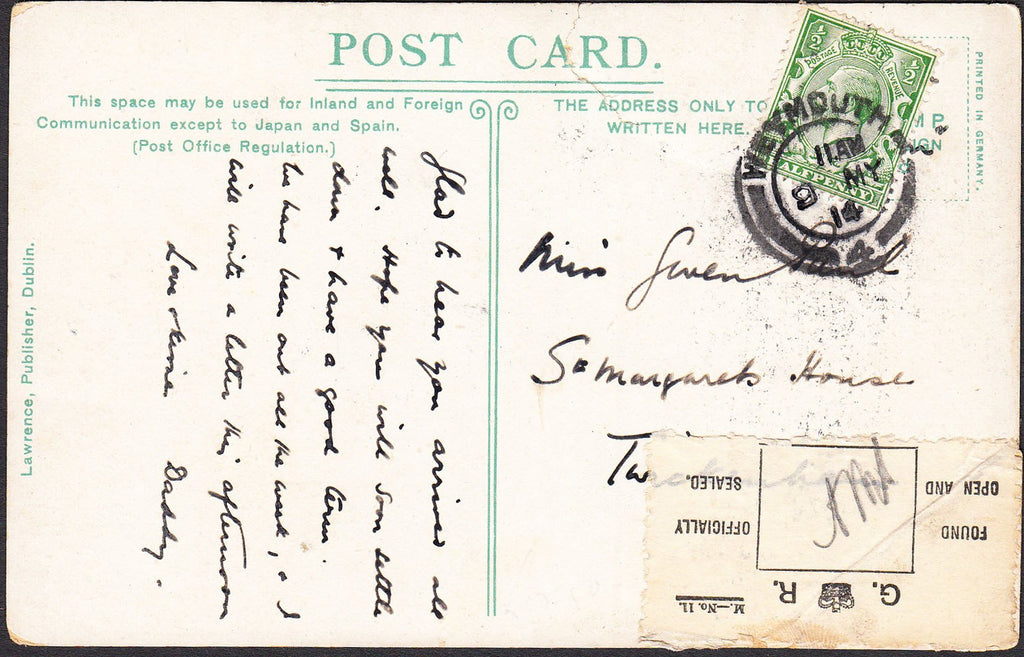 POST CARD.
This space may be used for Inland and Foreign
Communication except to Japan and Spain.
(Post Office Regulation.)
THE ADDRESS ONLY TO
WRITTEN HERE.
PRINTED IN GERMANY.
½ ½
POSTAGE REVENUE
HALFPENNY
WEYMOUTH
11 AM
9 MY
14
Lawrence, Publisher, Dublin.
Glad to hear you arrived all
well. Hope you will soon settle
down & have a good term.
We have been out all the week, & I
will write a letter this afternoon
Love &
Daddy.
Miss Gwen
St Margarets House
Tw
G. R.
M.—No. 11.
FOUND OFFICIALLY
OPEN AND SEALED.